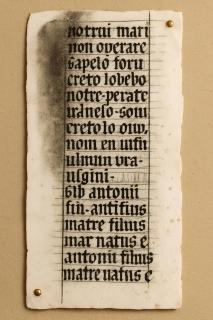 notrui mari
non operare
sapelo foru
creto lobebo
notre-perate
creto lo ouv.
nom en uifi
ulmun ura-
usgini-
sib antonii
fin-antifius
matre filius
mar natus e
antonii filius
matre uatus e